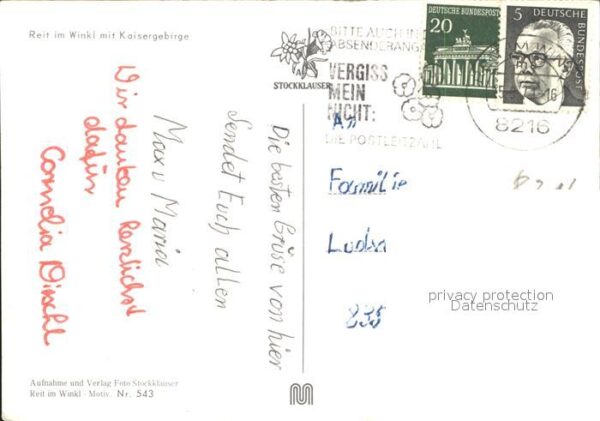 Reit im Winkl mit Kaisergebirge
STOCKKLAUSER
Die besten Grüße von hier
Sendet Euch allen
Max u Maria
Wir danken herzlichst
dafür
Cornelia
Aufnahme und Verlag Foto Stockklauser
Reit im Winkl · Motiv. Nr. 543
BITTE AUCH IN
ABSENDERANGA
VERGISS
MEIN
NICHT:
DIE POSTLEITZAHL
DEUTSCHE BUNDESPOST
20
5
DEUTSCHE BUNDESPOST
8216
An
Familie
835
privacy protection
Datenschutz